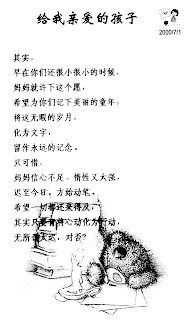 给我亲爱的孩子
2000/7/1
其实，
早在你们还很小很小的时候，
妈妈就许下这个愿，
希望为你们记下美丽的童年，
将这无暇的岁月，
化为文字，
留作永远的记念。
只可惜，
妈妈信心不足，惰性又太强，
迟至今日，方始动笔。
希望一切都还来得及，
其实只要肯将心动化为行动，
无所谓太迟，对否？